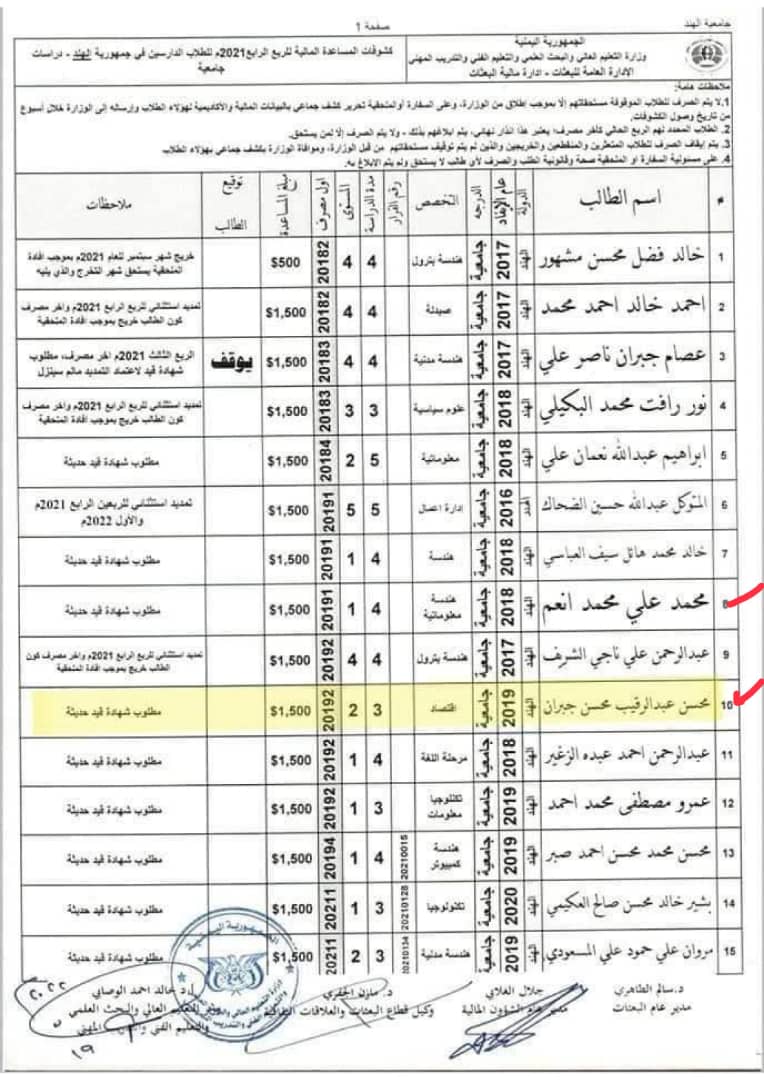 جامعية الهند
صفحة 1
الجمهورية اليمنية
وزارة التعليم العالي والبحث العلمي والتعليم الفني والتدريب المهني
الادارة العامة للبعثات - ادارة مالية البعثات
كشوفات المساعدة المالية للربع الرابع2021م للطلاب الدارسين في جمهورية الهند - دراسات
جامعية
ملاحظات هامة:
1.لا يتم الصرف للطلاب الموقوفة مستحقاتهم إلا بموجب إطلاق من الوزارة، وعلى السفارة أوالملحقية تحرير كشف جماعي بالبيانات المالية والأكاديمية لهؤلاء الطلاب وإرساله إلى الوزارة خلال أسبوع
من تاريخ وصول الكشوفات.
2. الطلاب المحدد لهم الربع الحالي كآخر مصرف؛ يعتبر هذا انذار نهائي، يتم ابلاغهم بذلك - ولا يتم الصرف إلا لمن يستحق.
3. يتم إيقاف الصرف للطلاب المتعثرين والمنقطعين والخريجين والذين لم يتم توقيف مستحقاتهم من قبل الوزارة، وموافاة الوزارة بكشف جماعي بهؤلاء الطلاب
4. على مسئولية السفارة او الملحقية صحة وقانونية الطلب والصرف لأي طالب لا يستحق ولم يتم الابلاغ به.
# اسم الطالب الدولة عام الإيفاد الدرجه التخصص رقم القرار مدة الدراسة المستوى اول مصرف مبلغ المساعدة توقيع الطالب ملاحظات
1 خالد فضل محسن مشهور الهند 2017 جامعية هندسة بترول 4 4 20182 $500 خريج شهر سبتمبر للعام 2021م بموجب افادة
الملحقية يستحق شهر التخرج والذي يليه
2 احمد خالد احمد محمد الهند 2017 جامعية صيدلة 4 4 20182 $1,500 تمديد استثنائي للربع الرابع 2021م واخر مصرف
كون الطالب خريج بموجب افادة الملحقية
3 عصام جبران ناصر علي الهند 2017 جامعية هندسة مدنية 4 4 20183 $1,500 يوقف الربع الثالث 2021م اخر مصرف، مطلوب
شهادة قيد لاعتماد التمديد مالم سينزل
4 نور رافت محمد البكيلي الهند 2018 جامعية علوم سياسية 3 3 20183 $1,500 تمديد استثنائي للربع الرابع 2021م واخر مصرف
كون الطالب خريج بموجب افادة الملحقية
5 ابراهيم عبدالله نعمان علي الهند 2018 جامعية معلوماتية 5 2 20184 $1,500 مطلوب شهادة قيد حديثة
6 المتوكل عبدالله حسين الضحاك الهند 2016 جامعية إدارة اعمال 5 5 20191 $1,500 تمديد استثنائي للربعين الرابع 2021م
والأول 2022م
7 خالد محمد هائل سيف العباسي الهند 2018 جامعية هندسة 4 1 20191 $1,500 مطلوب شهادة قيد حديثة
8 محمد علي محمد انعم الهند 2018 جامعية هندسة معلوماتية 4 1 20191 $1,500 مطلوب شهادة قيد حديثة
9 عبدالرحمن علي ناجي الشريف الهند 2017 جامعية هندسة بترول 4 4 20192 $1,500 تمديد استثنائي للربع الرابع 2021م واخر مصرف كون
الطالب خريج بموجب افادة الملحقية
10 محسن عبدالرقيب محسن جبران الهند 2019 جامعية اقتصاد 3 2 20192 $1,500 مطلوب شهادة قيد حديثة
11 عبدالرحمن احمد عبده الزغير الهند 2018 جامعية مرحلة اللغة 4 1 20192 $1,500 مطلوب شهادة قيد حديثة
12 عمرو مصطفى محمد احمد الهند 2019 جامعية تكنلوجيا معلومات 3 1 20192 $1,500 مطلوب شهادة قيد حديثة
13 محسن محمد محسن احمد صبر الهند 2019 جامعية هندسة كمبيوتر 20210015 4 1 20194 $1,500 مطلوب شهادة قيد حديثة
14 بشير خالد محسن صالح العكيمي الهند 2020 جامعية تكنولوجيا 20210128 3 1 20211 $1,500 مطلوب شهادة قيد حديثة
15 مروان علي حمود علي المسعودي الهند 2019 جامعية هندسة مدنية 20210134 3 2 20211 $1,500 مطلوب شهادة قيد حديثة
د.سالم الطاهري
مدير عام البعثات
جلال العلابي
مدير عام الشؤون المالية
د. مازن الجفري
وكيل قطاع البعثات والعلاقات الثقافية
أ.د خالد احمد الوصابي
وزير التعليم العالي والبحث العلمي
والتعليم الفني والتدريب المهني
الجمهورية اليمنية